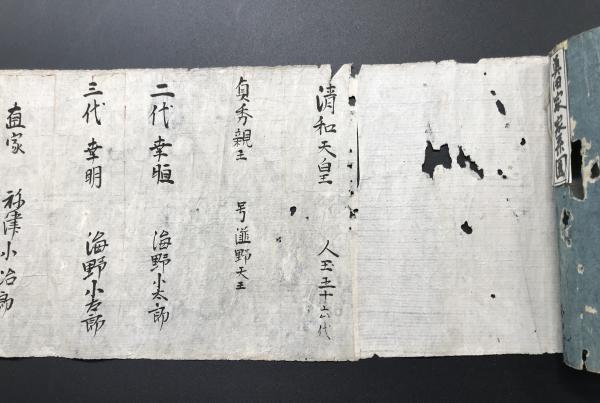 真田家系圖
清和天皇 人王五十六代
貞秀親王 号滋野天王
二代 幸恒 海野小太郎
三代 幸明 海野小太郎
直家 祢津小治郎